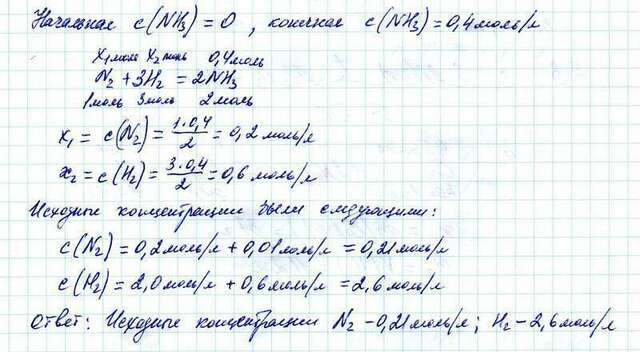 Начальная c(NH₃) = 0, конечная c(NH₃) = 0,4 моль/л
x₁ моль x₂ моль 0,4 моль
N₂ + 3H₂ = 2NH₃
1 моль 3 моль 2 моль
x₁ = c(N₂) = 1·0,4/2 = 0,2 моль/л
x₂ = c(H₂) = 3·0,4/2 = 0,6 моль/л
Исходные концентрации были следующими:
c(N₂) = 0,2 моль/л + 0,01 моль/л = 0,21 моль/л
c(H₂) = 2,0 моль/л + 0,6 моль/л = 2,6 моль/л
Ответ: Исходные концентрации N₂ – 0,21 моль/л; H₂ – 2,6 моль/л